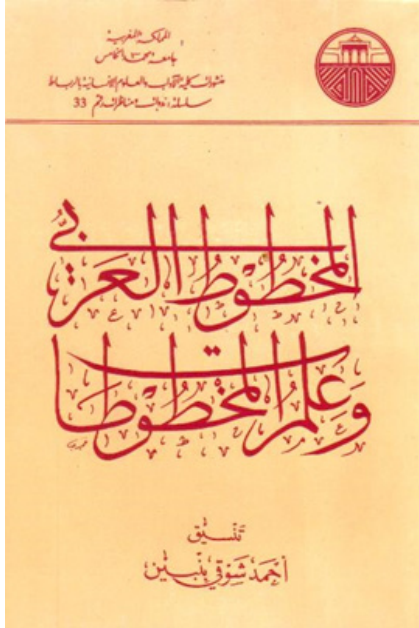 المملكة المغربية
جامعة محمد الخامس
منشورات كلية الآداب والعلوم الإنسانية بالرباط
سلسلة: ندوات ومناظرات رقم 33
المخطوط العربي
وعلم المخطوطات
تنسيق
أحمد شوقي بنبين